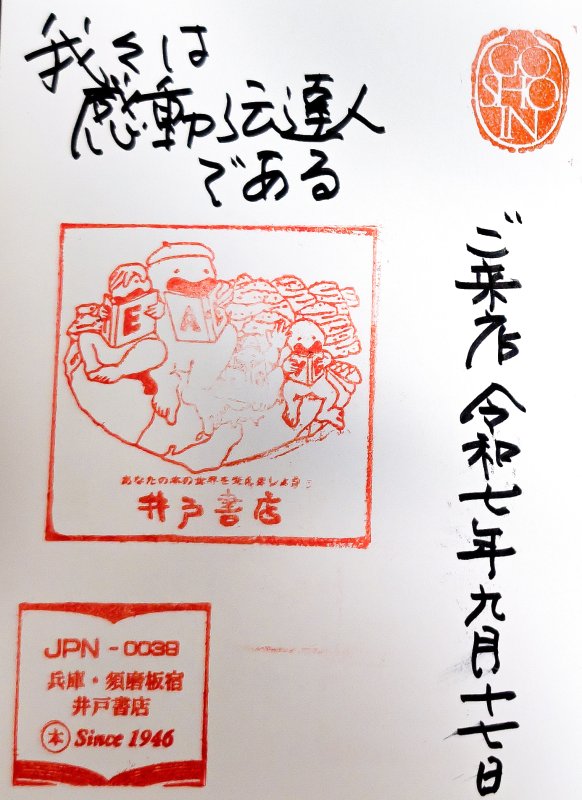 我々は
感動伝達人
である
GO
SHO
IN
ご来店 令和七年九月十七日
E
A
あなたの本の世界を変えましょう!
井戸書店
JPN-0038
兵庫・須磨板宿
井戸書店
本 Since 1946